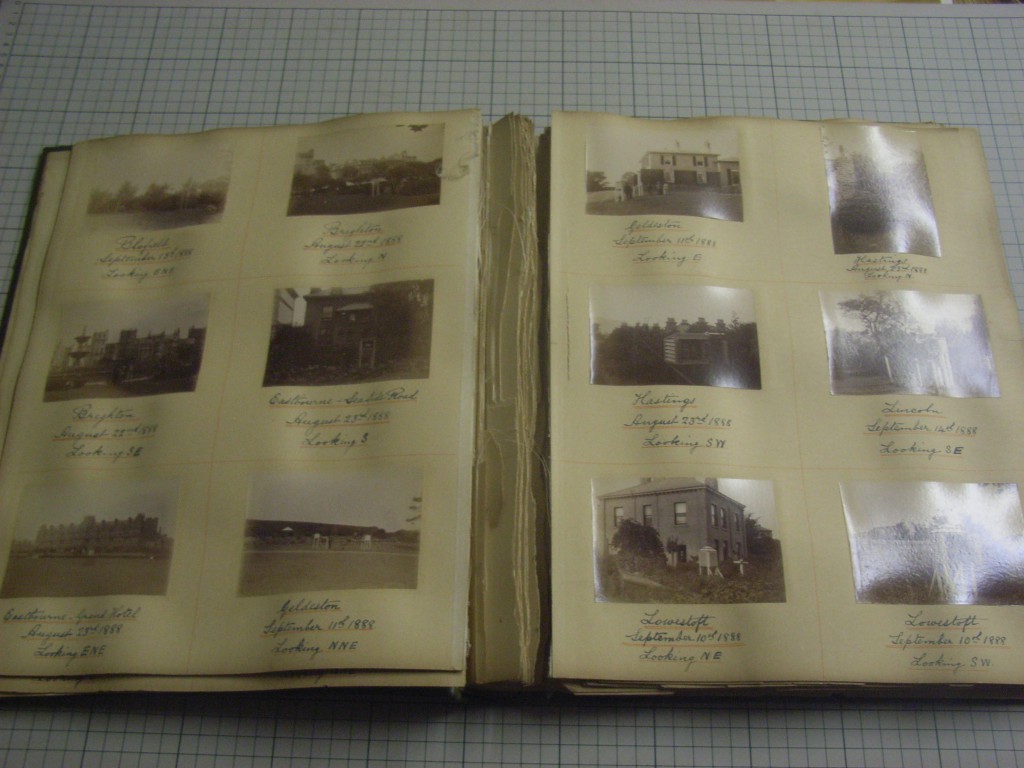 Blofield
September 13th 1888
Looking ENE
Brighton
August 22nd 1888
Looking N
Brighton
August 22nd 1888
Looking SE
Eastbourne - Seaside Road
August 23rd 1888
Looking S
Eastbourne - Grand Hotel
August 23rd 1888
Looking ENE
Geldeston
September 11th 1888
Looking NNE
Geldeston
September 11th 1888
Looking E
Hastings
August 23rd 1888
Looking N
Hastings
August 23rd 1888
Looking SW
Lincoln
September 14th 1888
Looking SE
Lowestoft
September 10th 1888
Looking NE
Lowestoft
September 10th 1888
Looking SW.